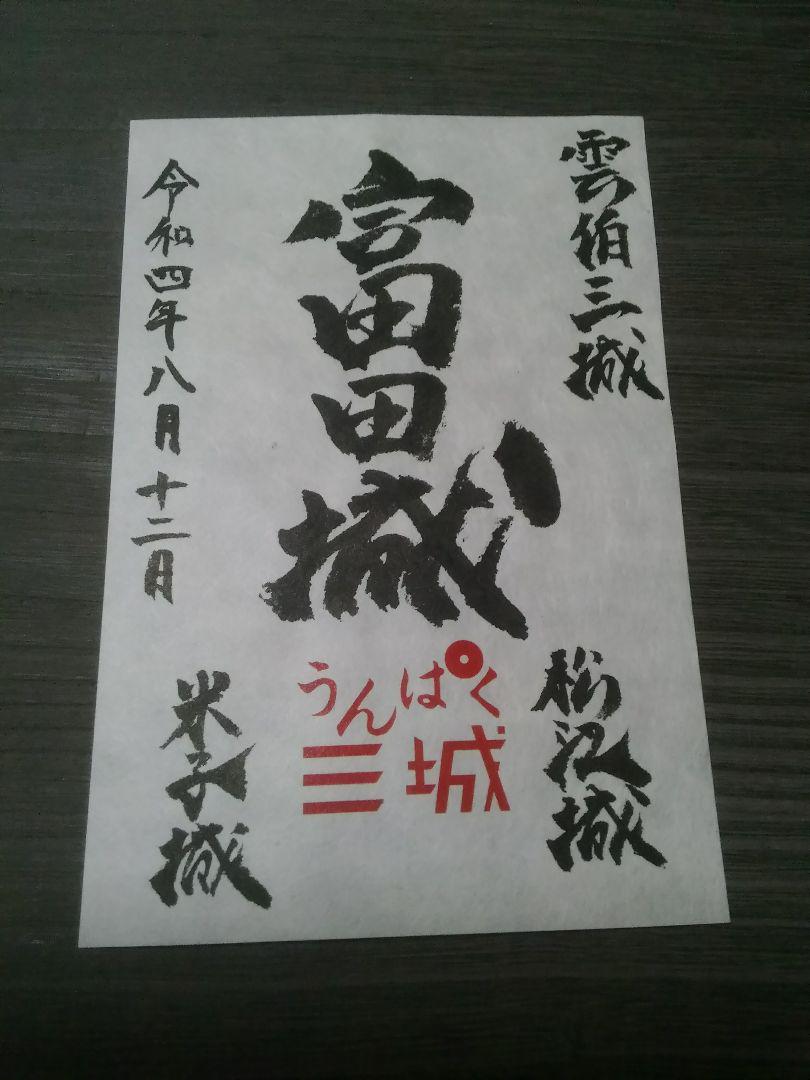 雲伯三城
富田城
令和四年八月十二日
松江城
うんぱく
三城
米子城